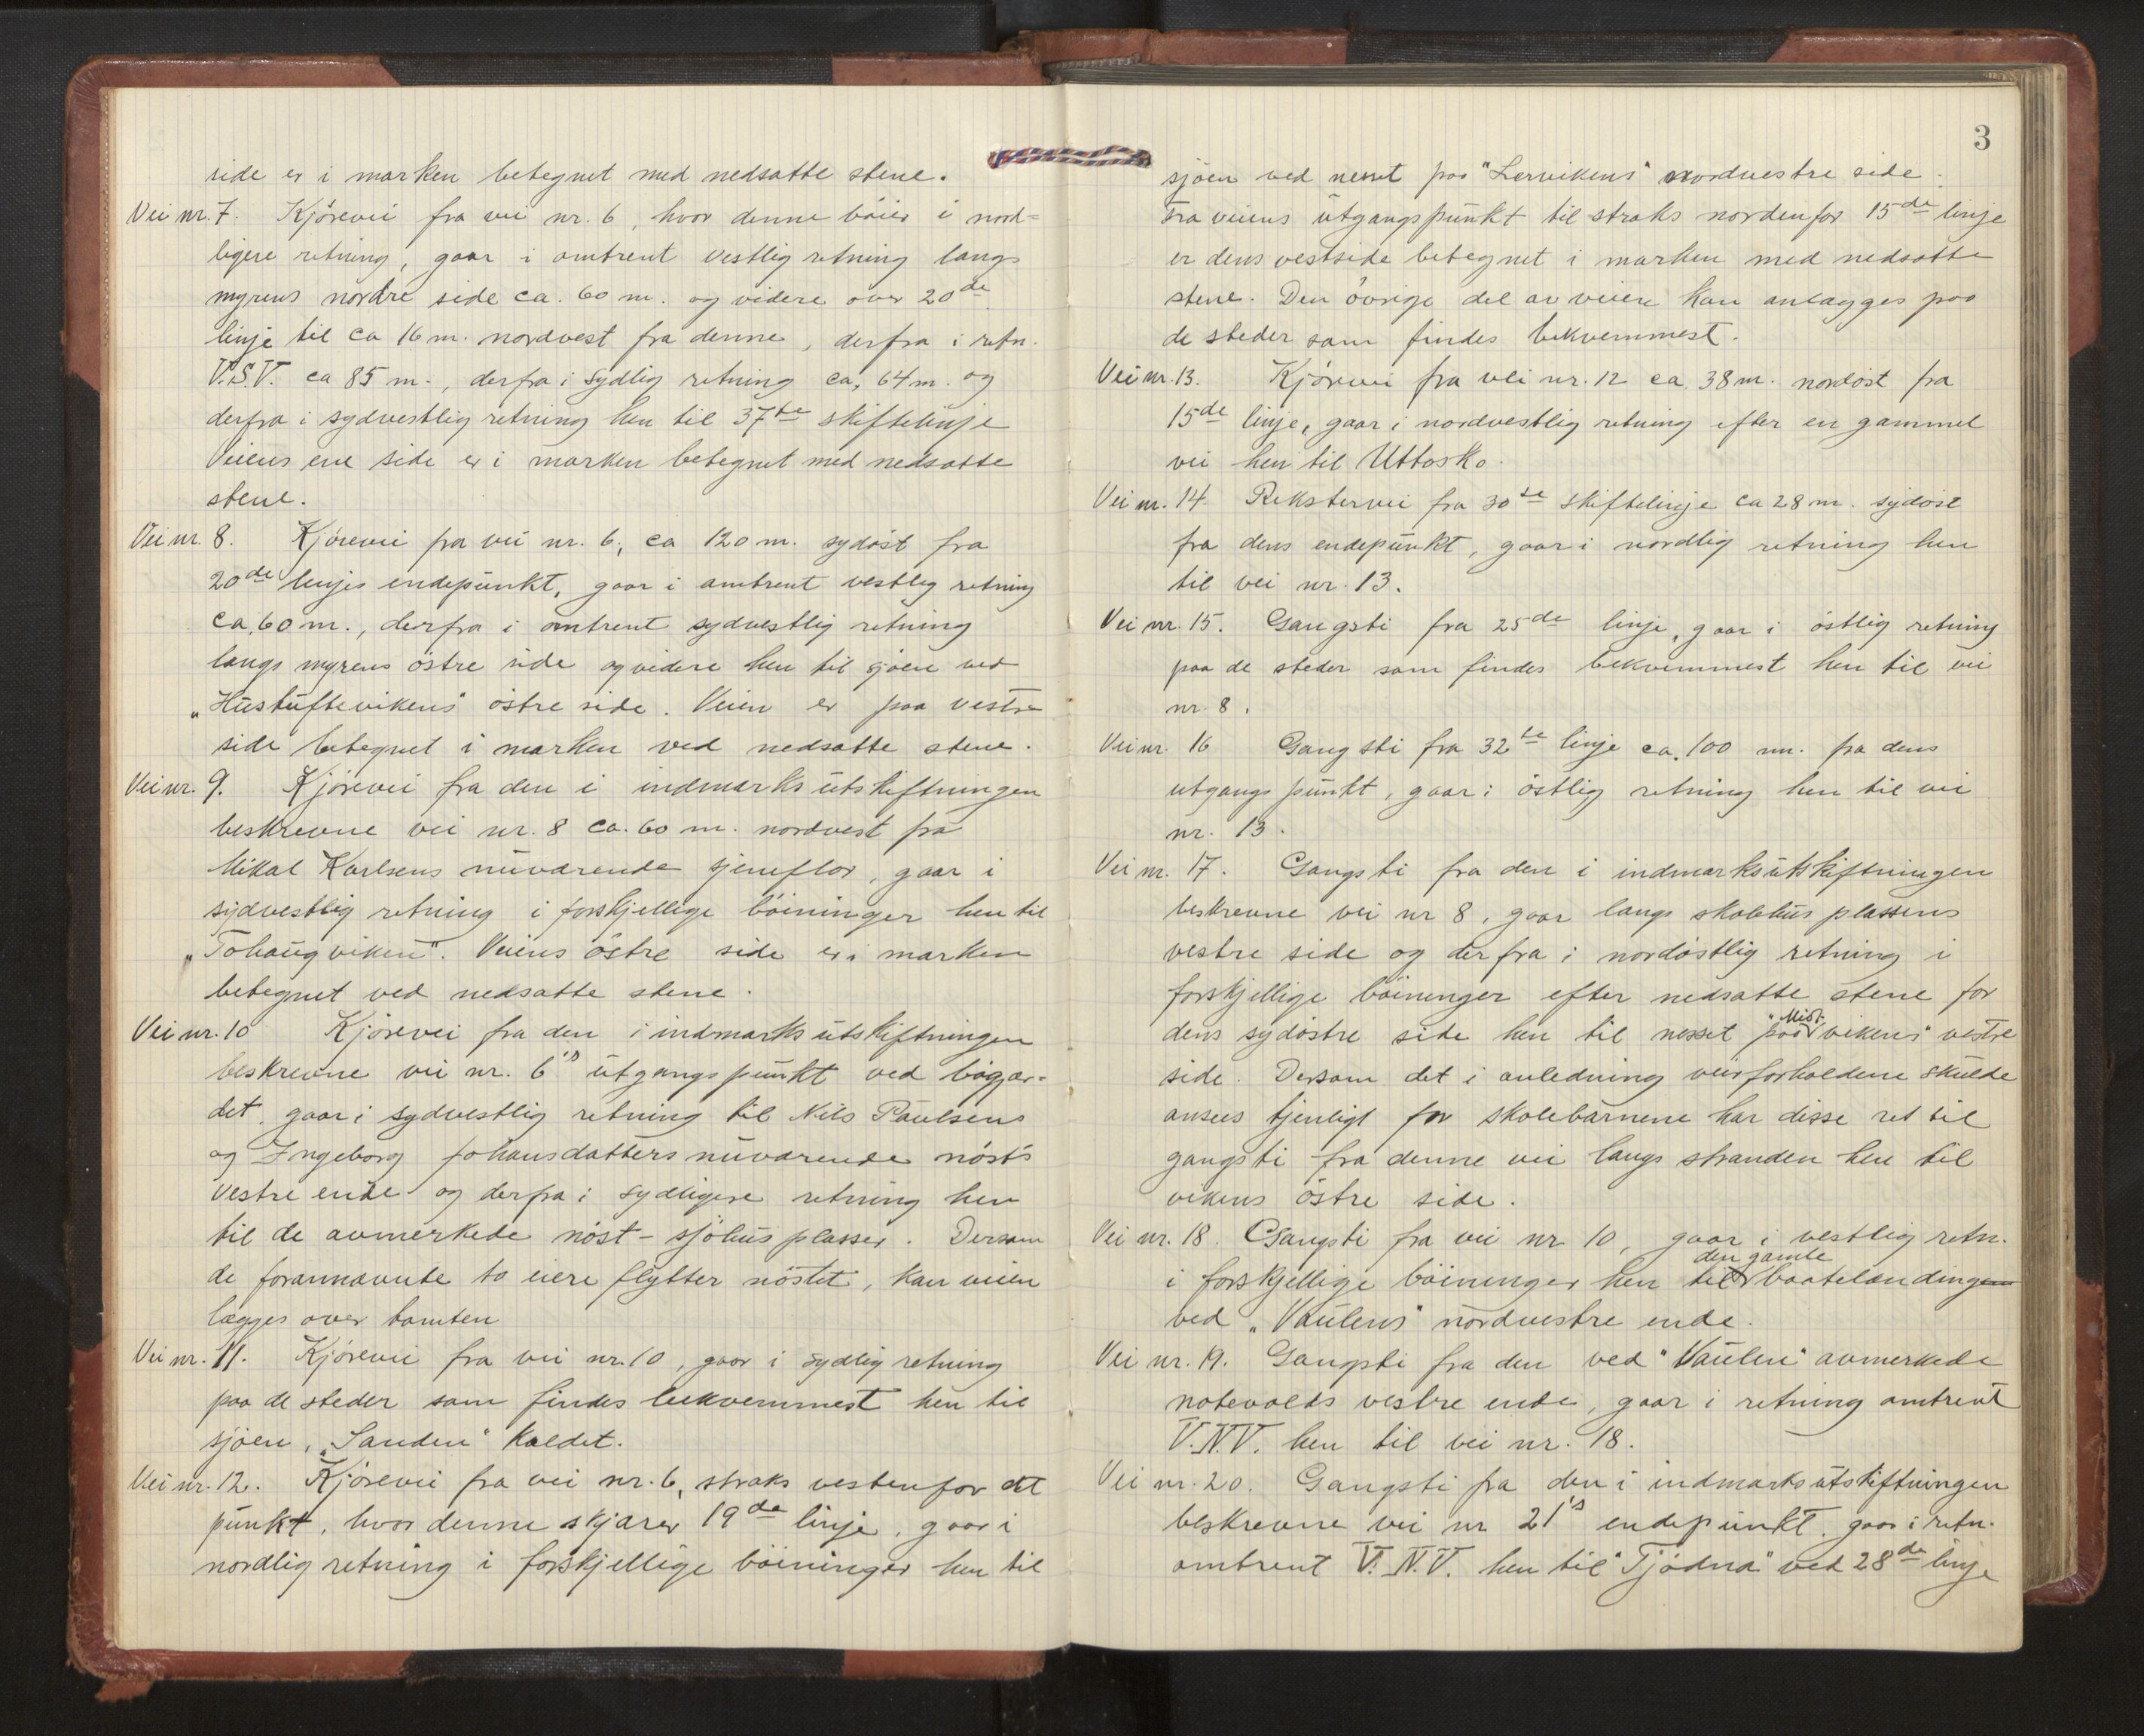 side er i marken betegnet med nedsatte stene.
Vei nr. 7. Kjörevei fra vei nr. 6, hvor denne böier i nord=
ligere retning, gaar i omtrent vestlig retning langs
myrens nordre side ca. 60 m. og videre over 20de
linje til ca 16 m. nordvest fra denne, derfra i retn.
V.S.V. ca 85 m., derfra i sydlig retning ca. 64 m. og
derfra i sydvestlig retning hen til 37te skiftelinje
Veiens ene side er i marken betegnet med nedsatte
stene.
Vei nr. 8. Kjörevei fra vei nr. 6, ca 120 m. sydöst fra
20de linjes endepunkt, gaar i omtrent vestlig retning
ca. 60 m., derfra i omtrent sydvestlig retning
langs myrens östre side og videre hen til sjöen ved
„Hustuftevikens" östre side. Veien er paa vestre
side betegnet i marken ved nedsatte stene.
Vei nr. 9. Kjörevei fra den i indmarksutskiftningen
beskrevne vei nr. 8 ca. 60 m. nordvest fra
Mikal Karlsens nuværende sjeneflor, gaar i
sydvestlig retning i forskjellige böininger hen til
„Tohaugviken". Veiens östre side er i marken
betegnet ved nedsatte stene.
Vei nr. 10 Kjörevei fra den i indmarksutskiftningen
beskrevne vei nr. 6's utgangspunkt ved bögjær-
det, gaar i sydvestlig retning til Nils Paulsens
og Ingeborg Johansdatters nuværende nösts
vestre ende og derfra i sydligere retning hen
til de avmerkede nöst- sjöhusplasser. Dersom
de forannævnte to eiere flytter nöstet, kan veien
lægges over tomten
Vei nr. 11. Kjörevei fra vei nr. 10, gaar i sydlig retning
paa de steder som findes bekvemmest hen til
sjöen, „Sanden" kaldet.
Vei nr. 12. Kjörevei fra vei nr. 6, straks vestenfor det
punkt, hvor denne skjærer 19de linje, gaar i
nordlig retning i forskjellige böininger hen til
3
sjöen ved nesset paa "Lervikens" nordvestre side.
Fra veiens utgangspunkt til straks nordenfor 15de linje
er dens vestside betegnet i marken med nedsatte
stene. Den övrige del av veien kan anlægges paa
de steder som findes bekvemmest.
Vei nr. 13. Kjörevei fra vei nr. 12 ca. 38 m. nordöst fra
15de linje, gaar i nordvestlig retning efter en gammel
vei hen til Uttosko.
Vei nr. 14. Rekstervei fra 30te skiftelinje ca 28 m. sydöst
fra dens endepunkt, gaar i nordlig retning hen
til vei nr. 13.
Vei nr. 15. Gangsti fra 25de linje, gaar i östlig retning
paa de steder som findes bekvemmest hen til vei
nr. 8.
Vei nr. 16 Gangsti fra 32te linje ca. 100 m. fra dens
utgangspunkt, gaar i östlig retning hen til vei
nr. 13.
Vei nr. 17. Gangsti fra den i indmarksutskiftningen
beskrevne vei nr 8, gaar langs skolehusplassens
vestre side og derfra i nordöstlig retning i
forskjellige böininger efter nedsatte stene for
dens sydöstre side hen til nesset paa "Midt-vikens" vestre
side. Dersom det i anledning veirforholdene skulde
ansees tjenligt for skolebarnene har disse ret til
gangsti fra denne vei langs stranden hen til
vikens östre side.
Vei nr. 18. Gangsti fra vei nr 10, gaar i vestlig retn.
i forskjellige böininger hen til den gamle baatelanding
ved „Vaulens" nordvestre ende.
Vei nr. 19. Gangsti fra den ved "Vaulen" avmerkede
notevolds vestre ende, gaar i retning omtrent
V.N.V. hen til vei nr. 18.
Vei nr. 20. Gangsti fra den i indmarksutskiftningen
beskrevne vei nr 21's endepunkt, gaar i retn.
omtrent V.N.V. hen til "Tjödna" ved 28de linje